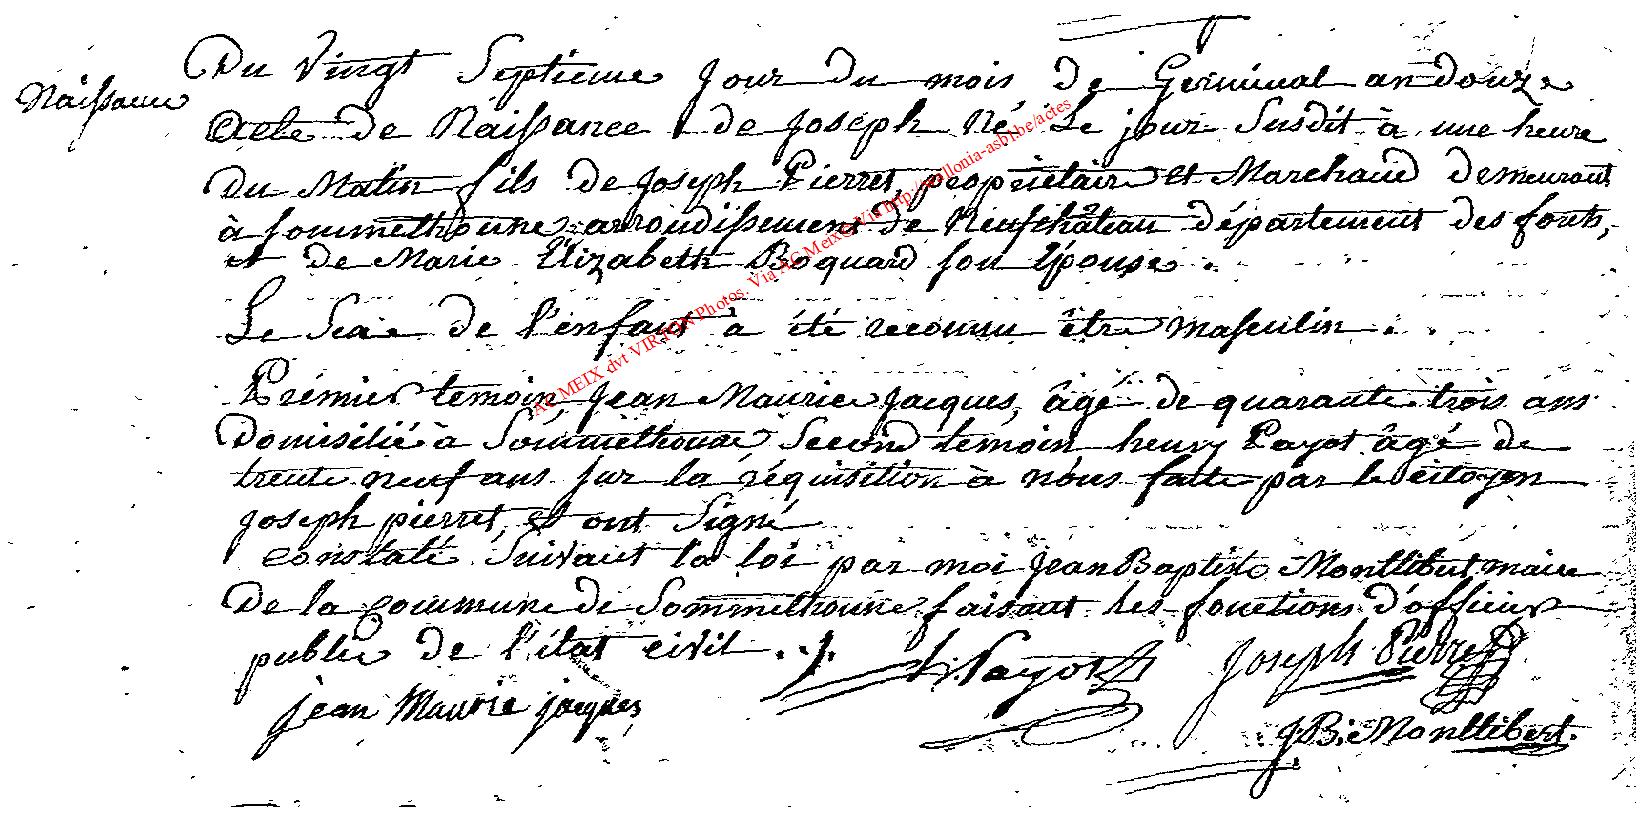 Du Vingt Septieme Jour du mois de Germinal an douze
Naissance
Acte de Naissance de Joseph Né Le jour Susdit à une heure
du Matin fils de Joseph Pierret, propriétaire et Marchand demeurant
à Sommethonne arrondissement de Neufchâteau département des forets,
et de Marie Elizabeth Boquard son Epouse.
Le Sexe de l'enfant a été reconnu être masculin.
Prémier temoin, Jean Maurice Jacques, âgé de quarante trois ans
domicilié à Sommethonne, Second temoin henry Payot âgé de
trente neuf ans sur la réquisition à nous faite par le citoyen
Joseph pierret, et ont Signé
constaté Suivant la loi par moi Jean Baptiste Montlibert, maire
De la Commune de Sommethonne faisant les fonctions d'officier
public de l'état civil
H. Payot
Joseph Pierret
jean Maurice jacques
J. B. Montlibert.
AC MEIX dvt VIRTON Photos. Via AC Meix©. Via http://wallonia-asbl.be/actes